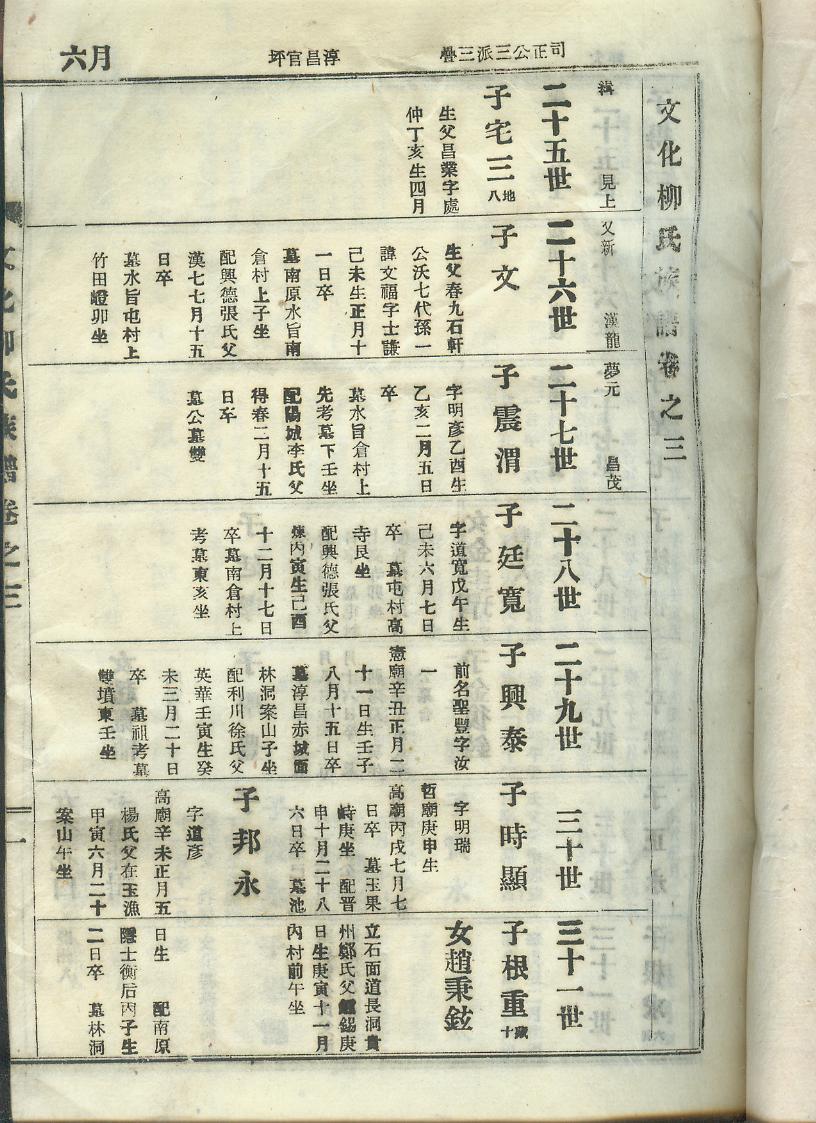 司正公三派三疊
淳昌官坪
月六
文化柳氏族譜卷之三
緝 見上
二十五世
子宅三 地八
生父昌業字處
仲丁亥生四月
父新 漢龍
二十六世
子文
生父春九石軒
公沃七代孫一
諱文福字士謙
己未生正月十
一日卒
墓南原水旨南
倉村上子坐
配興德張氏父
漢七七月十五
日卒
墓水旨屯村上
竹田嶝卯坐
夢元 昌茂
二十七世
子震渭
字明彥乙酉生
乙亥二月五日
卒
墓水旨倉村上
先考墓下壬坐
配陽城李氏父
得春二月十五
日卒
墓公墓雙
二十八世
子廷寬
字道寬戊午生
己未六月七日
卒 墓屯村高
寺艮坐
配興德張氏父
煉內寅生己酉
十二月十七日
卒墓南倉村上
考墓東亥坐
二十九世
子興泰
前名聖豐字汝
一
憲廟辛丑正月二
十一日生壬子
八月十五日卒
墓淳昌赤城面
林洞案山子坐
配利川徐氏父
英華壬寅生癸
未三月二十日
卒 墓祖考墓
雙墳東壬坐
三十世
子時顯
字明瑞
哲廟庚申生
高廟丙戌七月七
日卒 墓玉果
峙庚坐 配晋
申十月二十八
六日卒 墓池
子邦永
字道彥
高廟辛未正月五
楊氏父在玉漁
甲寅六月二十
案山午坐
三十一世
子根重 藏十
女趙秉鉉
立石面道長洞賁
州鄭氏父錫庚
日生庚寅十一月
內村前午坐
日生 配南原
隱士衡后丙子生
二日卒 墓林洞
文化柳氏族譜卷之三
一